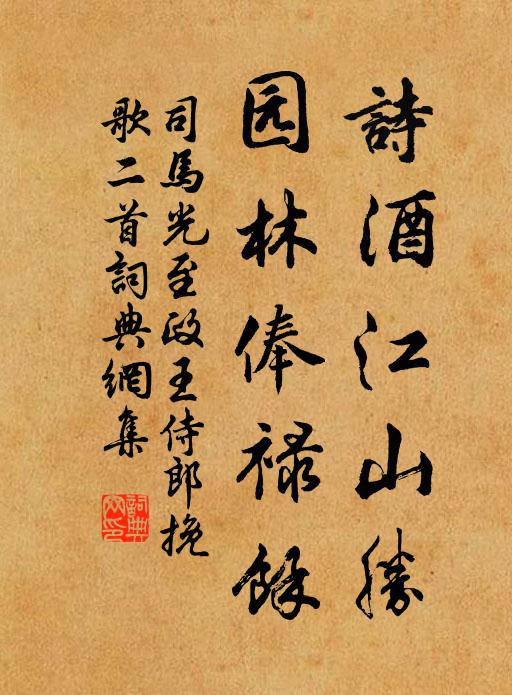 詩酒江山勝
园林俸禄餘
司馬光至政王侍郎挽
歌二首詞典網集
詞典
网印